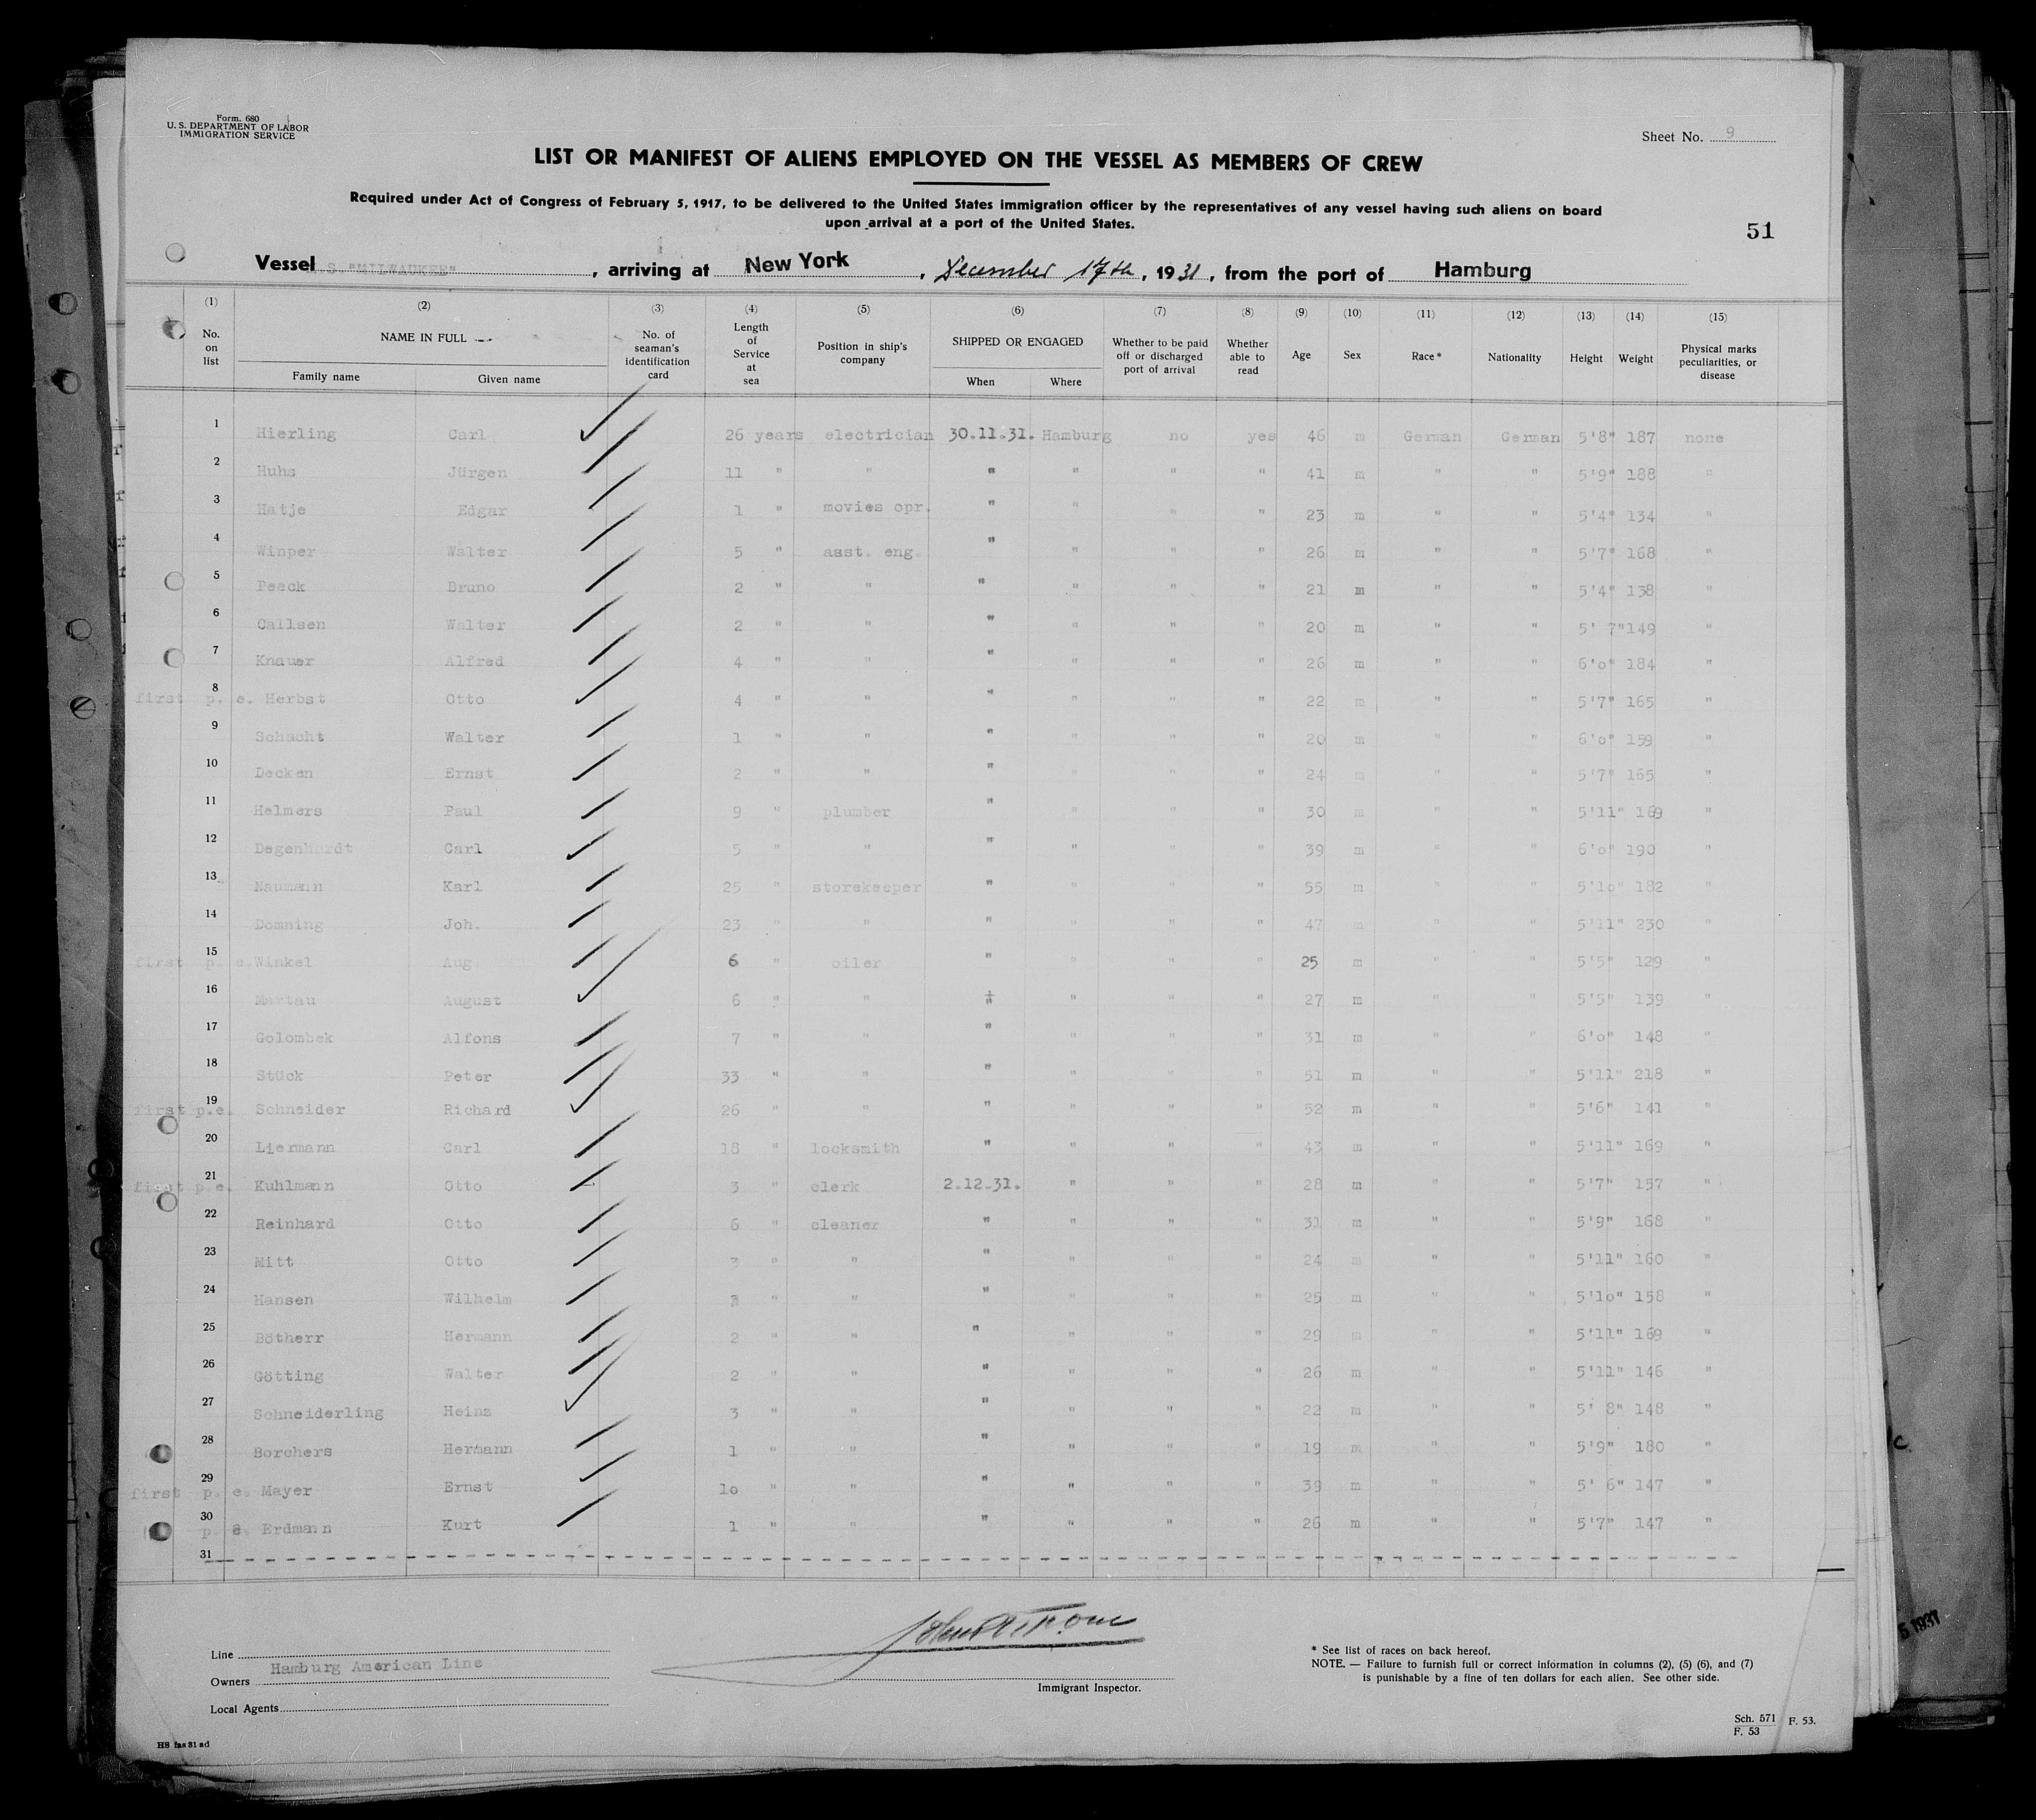 Form. 680
U. S. DEPARTMENT OF LABOR
IMMIGRATION SERVICE
Sheet No. 9
LIST OR MANIFEST OF ALIENS EMPLOYED ON THE VESSEL AS MEMBERS OF CREW
Required under Act of Congress of February 5, 1917, to be delivered to the United States immigration officer by the representatives of any vessel having such aliens on board
upon arrival at a port of the United States.
51
Vessel S "MILWAUKEE", arriving at New York, December 17th, 1931, from the port of Hamburg
(1) (2) (3) (4) (5) (6) (7) (8) (9) (10) (11) (12) (13) (14) (15)
No. on list NAME IN FULL Family name Given name No. of seaman's identification card Length of Service at sea Position in ship's company SHIPPED OR ENGAGED When Where Whether to be paid off or discharged port of arrival Whether able to read Age Sex Race* Nationality Height Weight Physical marks peculiarities, or disease
1 Hierling Carl 26 years electrician 30.11.31. Hamburg no yes 46 m German German 5'8" 187 none
2 Huhs Jürgen 11 " " " " " " 41 m " " 5'9" 188 "
3 Hatje Edgar 1 " movies opr. " " " " 23 m " " 5'4" 134 "
4 Winper Walter 5 " asst. eng. " " " " 26 m " " 5'7" 168 "
5 Peeck Bruno 2 " " " " " " 21 m " " 5'4" 138 "
6 Callsen Walter 2 " " " " " " 20 m " " 5' 7" 149 "
7 Knauer Alfred 4 " " " " " " 26 m " " 6'o" 184 "
first p. e. 8 Herbst Otto 4 " " " " " " 22 m " " 5'7" 165 "
9 Schacht Walter 1 " " " " " " 20 m " " 6'o" 159 "
10 Decken Ernst 2 " " " " " " 24 m " " 5'7" 165 "
11 Helmers Paul 9 " plumber " " " " 30 m " " 5'11" 169 "
12 Degenhardt Carl 5 " " " " " " 39 m " " 6'o" 190 "
13 Naumann Karl 25 " storekeeper " " " " 55 m " " 5'1o" 182 "
14 Domning Joh. 23 " " " " " " 47 m " " 5'11" 230 "
first p. e. 15 Winkel Aug. 6 " oiler " " " " 25 m " " 5'5" 129 "
16 Mertau August 6 " " " " " " 27 m " " 5'5" 139 "
17 Golombek Alfons 7 " " " " " " 31 m " " 6'o" 148 "
18 Stück Peter 33 " " " " " " 51 m " " 5'11" 218 "
first p.e. 19 Schneider Richard 26 " " " " " " 52 m " " 5'6" 141 "
20 Liermann Carl 18 " locksmith " " " " 43 m " " 5'11" 169 "
first p.e. 21 Kuhlmann Otto 3 " clerk 2.12.31. " " " 28 m " " 5'7" 157 "
22 Reinhard Otto 6 " cleaner " " " " 31 m " " 5'9" 168 "
23 Mitt Otto 3 " " " " " " 24 m " " 5'11" 160 "
24 Hansen Wilhelm " " " " " " 25 m " " 5'1o" 158 "
25 Bötherr Hermann 2 " " " " " " 29 m " " 5'11" 169 "
26 Götting Walter 2 " " " " " " 26 m " " 5'11" 146 "
27 Schneiderling Heinz 3 " " " " " " 22 m " " 5' 8" 148 "
28 Borchers Hermann 1 " " " " " " 19 m " " 5'9" 180 "
first p. e. 29 Mayer Ernst 1o " " " " " " 39 m " " 5' 6" 147 "
p. e. 30 Erdmann Kurt 1 " " " " " " 26 m " " 5'7" 147 "
31
Line
Owners Hamburg American Line
Local Agents
Immigrant Inspector.
* See list of races on back hereof.
NOTE. — Failure to furnish full or correct information in columns (2), (5) (6), and (7)
is punishable by a fine of ten dollars for each alien. See other side.
Sch. 571
F. 53
F. 53.
HS fas 31 ad
5 1931